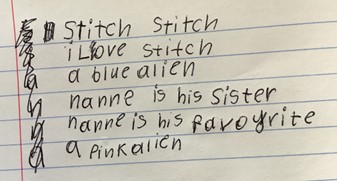 Stitch Stitch
i Love Stitch
a blue alien
nanne is his Sister
nanne is his favoyrite
a Pink alien